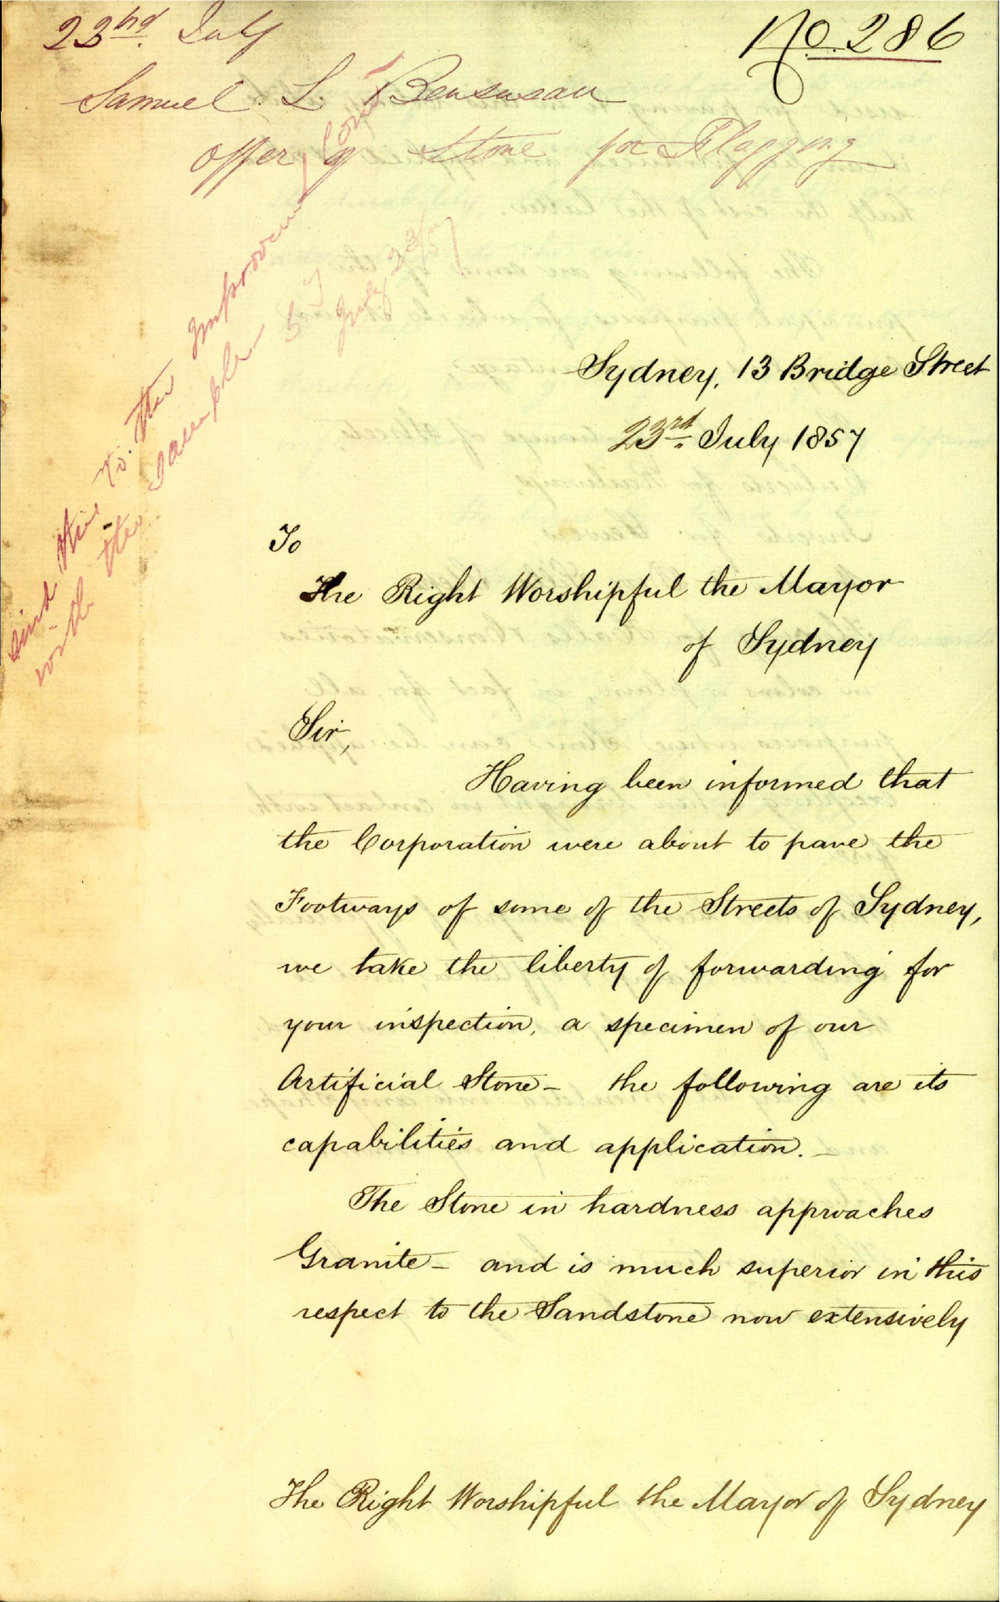 23rd. July
No. 286
Samuel L. Bensusan
offer of Stone for Flagging
Send this to the Improvement Com
with the sample
July 23/57
Sydney, 13 Bridge Street
23rd. July 1857
To
The Right Worshipful the Mayor
of Sydney
Sir,
Having been informed that
the Corporation were about to pave the
Footways of some of the Streets of Sydney,
we take the liberty of forwarding for
your inspection, a specimen of our
Artificial Stone – the following are its
capabilities and application. –
The Stone in hardness approaches
Granite – and is much superior in this
respect to the Sandstone now extensively
The Right Worshipful the Mayor of Sydney